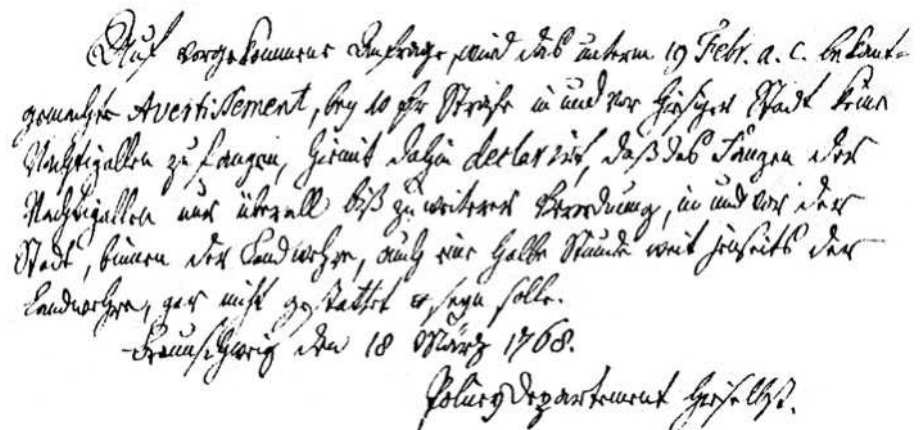 Auf vorgekommene Anfrage, wird das unterm 19 Febr. a. c. bekant-
gemachte Avertissement, bey 10 thr Strafe in und vor hiesiger Stadt keine
Nachtigallen zu fangen, hiemit dahin declarirt, daß das Fangen der
Nachtigallen nur überall biß zu weiterer Verordnung, in und vor der
Stadt, binnen der Landwehre, auch eine halbe Stunde weit jenseits der
Landwehre, gar nicht gestattet seyn solle.
Braunschweig den 18 März 1768.
Policeydepartement hieselbst.